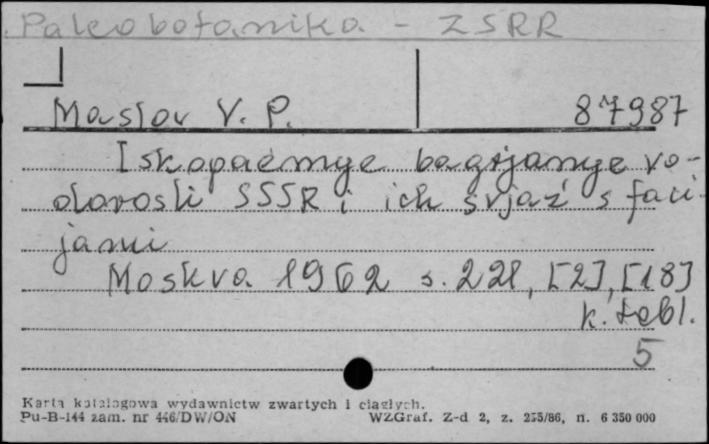 Paleobotanika - ZSRR
Maslov V. P. 87987
Iskopaemye bagrjanye vo-
dorosli SSSR i ich svjaź s faci-
jami
Moskva 1962 s. 221, [2], [18]
k. tabl.
5
Karta katalogowa wydawnictw zwartych i ciągłych.
Pu-B-144 zam. nr 446/DW/ON WZGraf. Z-d 2, z. 255/86, n. 6 350 000